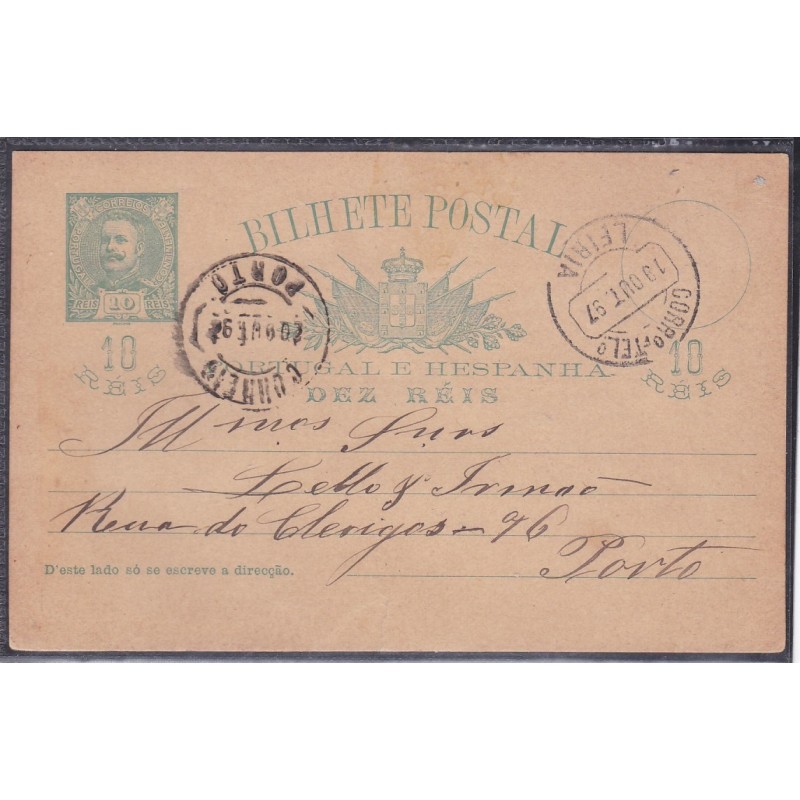 CORREIOS
REIS 10 REIS
BILHETE POSTAL
10
RÉIS
PORTUGAL E HESPANHA
DEZ RÉIS
10
RÉIS
CORREIO
20 OUT 97
PORTO
LEIRIA
19 OUT. 97
CORRO E TELO
Ill mos Snrs
Lello & Irmaõ
Rua do Clerigos - 96
Porto
D'este lado só se escreve a direcção.